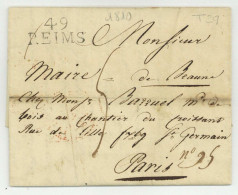 1810
49
REIMS
Monsieur
Maire de Beaune
Chez Monsr. Barruel md. de
bois au chantier du croissant
Rue de Lille fxbg St. Germain
n° 25
Paris